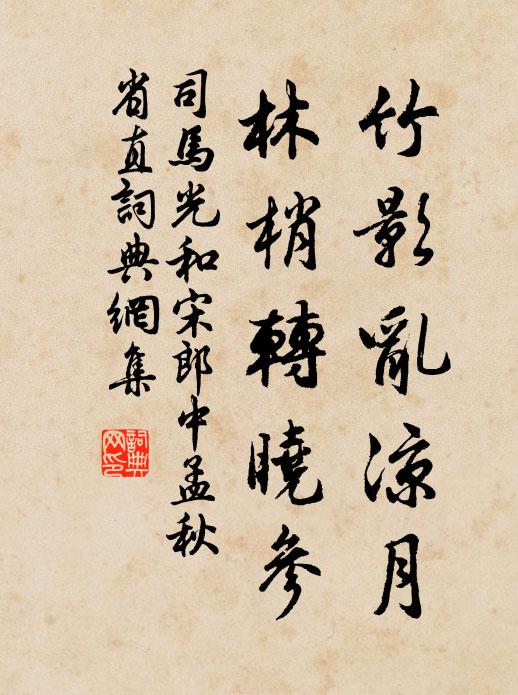 竹影亂涼月
林梢轉曉參
司馬光和宋郎中孟秋
省直詞典網集
詞典
网印